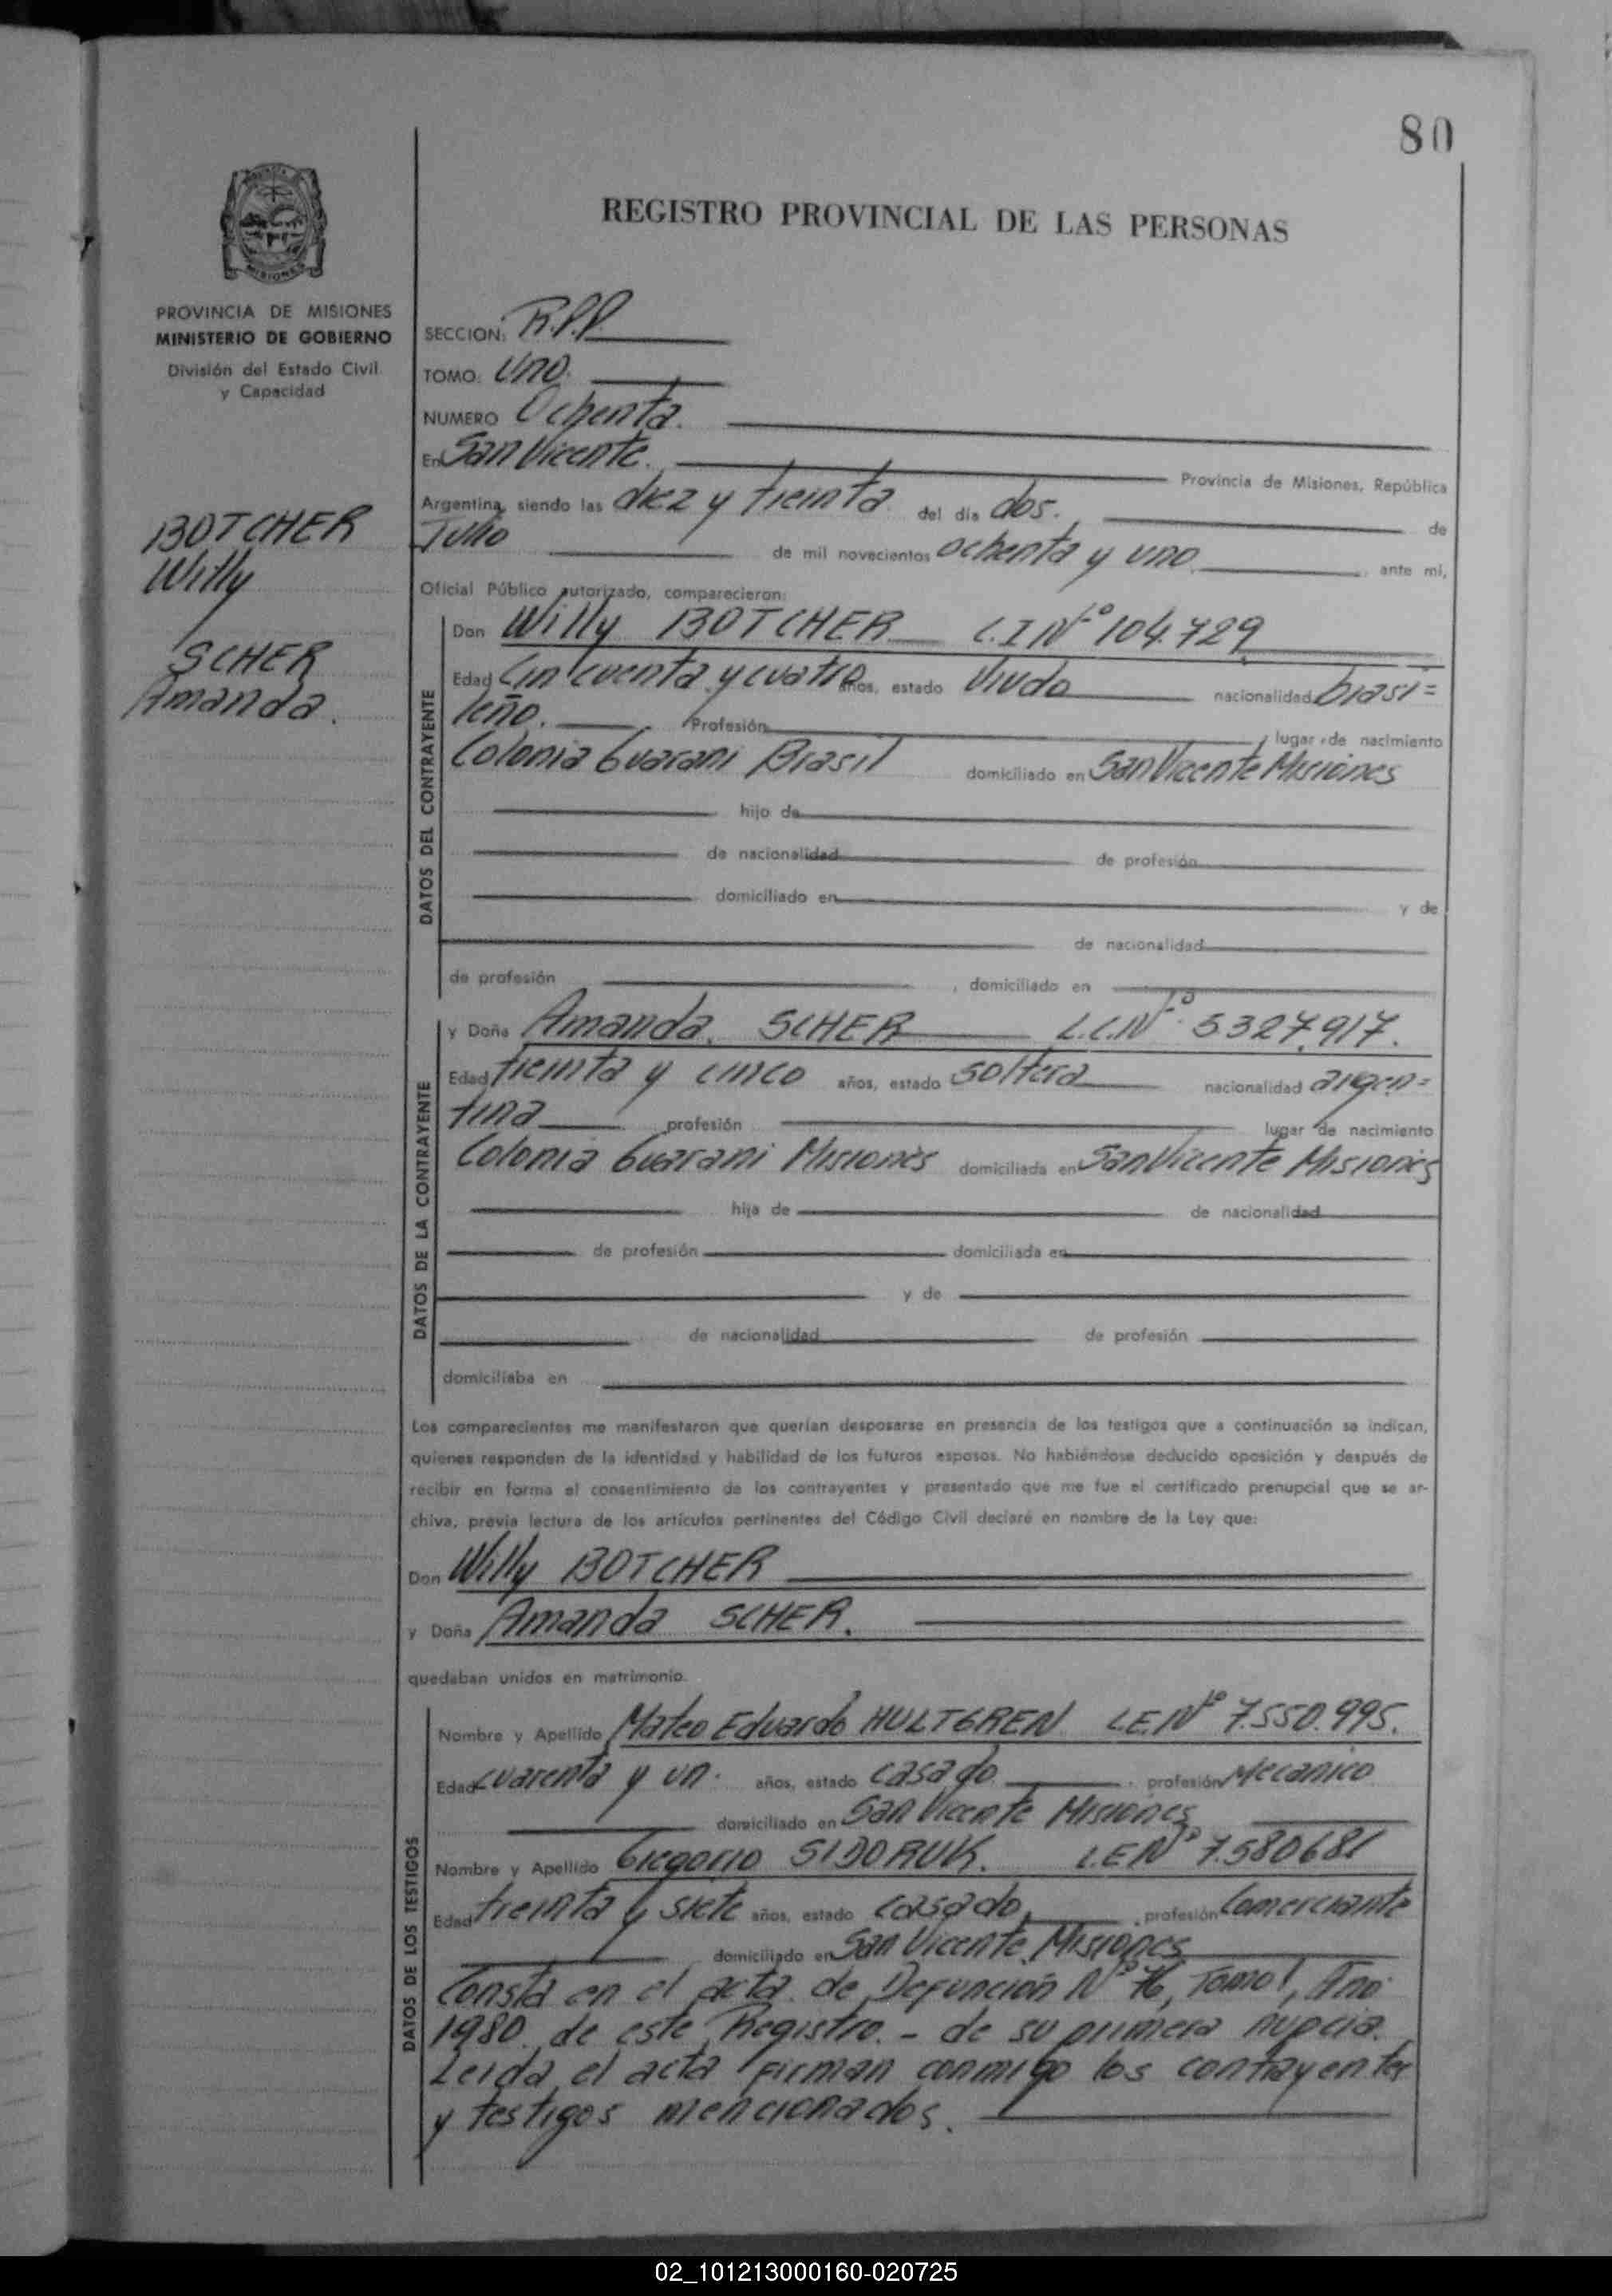 80
REGISTRO PROVINCIAL DE LAS PERSONAS
MISIONES
PROVINCIA DE MISIONES
MINISTERIO DE GOBIERNO
División del Estado Civil
y Capacidad
BOTCHER
Willy
SCHER
Amanda.
SECCION: R.P.P.
TOMO: Uno.
NUMERO Ochenta.
En San Vicente. Provincia de Misiones, República
Argentina, siendo las diez y treinta del día dos. de
Julio de mil novecientos ochenta y uno. ante mí,
Oficial Público autorizado, comparecieron:
DATOS DEL CONTRAYENTE
Don Willy BOTCHER C.I Nº 104.729
Edad Cincuenta y cuatro años, estado Viudo nacionalidad brasi=
leño. Profesión lugar de nacimiento
Colonia Guarani Brasil domiciliado en San Vicente Misiones
hijo de
de nacionalidad de profesión
domiciliado en y de
de nacionalidad
de profesión , domiciliado en
DATOS DE LA CONTRAYENTE
y Doña Amanda SCHER L.C.Nº 5.327.917.
Edad treinta y cinco años, estado soltera nacionalidad argen=
tina profesión lugar de nacimiento
Colonia Guarani Misiones domiciliada en San Vicente Misiones
hija de de nacionalidad
de profesión domiciliada en
y de
de nacionalidad de profesión
domiciliaba en
Los comparecientes me manifestaron que querían desposarse en presencia de los testigos que a continuación se indican,
quienes responden de la identidad y habilidad de los futuros esposos. No habiéndose deducido oposición y después de
recibir en forma el consentimiento de los contrayentes y presentado que me fue el certificado prenupcial que se ar-
chiva, previa lectura de los artículos pertinentes del Código Civil declaré en nombre de la Ley que:
Don Willy BOTCHER
y Doña Amanda SCHER.
quedaban unidos en matrimonio.
DATOS DE LOS TESTIGOS
Nombre y Apellido Mateo Eduardo HULTGREN L.E.Nº 7.550.995.
Edad cuarenta y un. años, estado casado profesión Mecanico
domiciliado en San Vicente Misiones
Nombre y Apellido Gregorio SIDORUK. L.E.Nº 7.580681
Edad treinta y siete años, estado casado, profesión Comerciante
domiciliado en San Vicente Misiones
Consta en el acta de Defunción Nº 76, Tomo 1, Año
1980 de este Registro. - de su primera nupcia.
Leida el acta firman conmigo los contrayentes
y testigos mencionados.
02_101213000160-020725